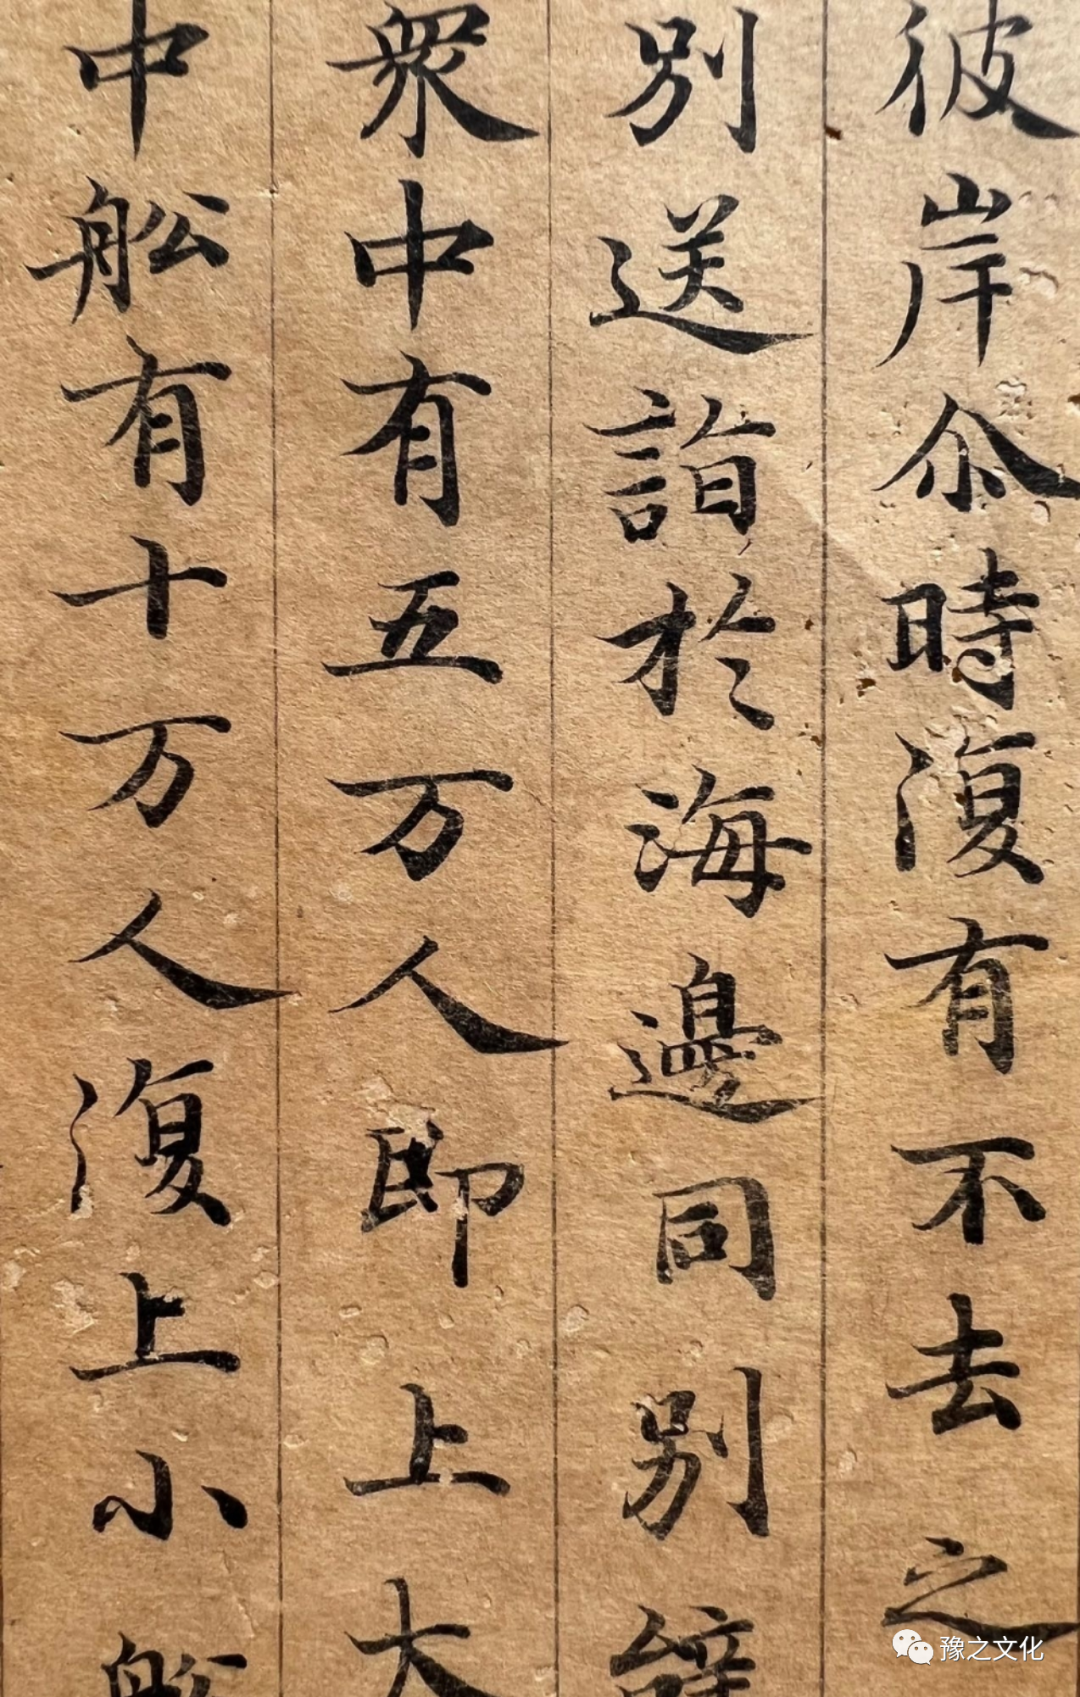 彼岸尒時復有不去之
別送詣於海邊同別辤
衆中有五万人即上大
中舩有十万人復上小舩
豫之文化